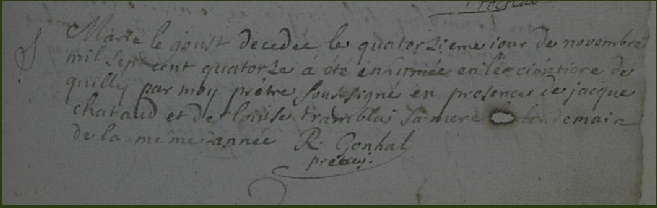 Marie le goust decedée le quatorzieme jour de novembre
mil sept cent quatorze a été enhumée en le cimetiere de
quilly par moy prêtre soussigné en presence de jacque
chataud et de louise tramblai sa mere demain
de la meme année R. Gonhal
prêtre